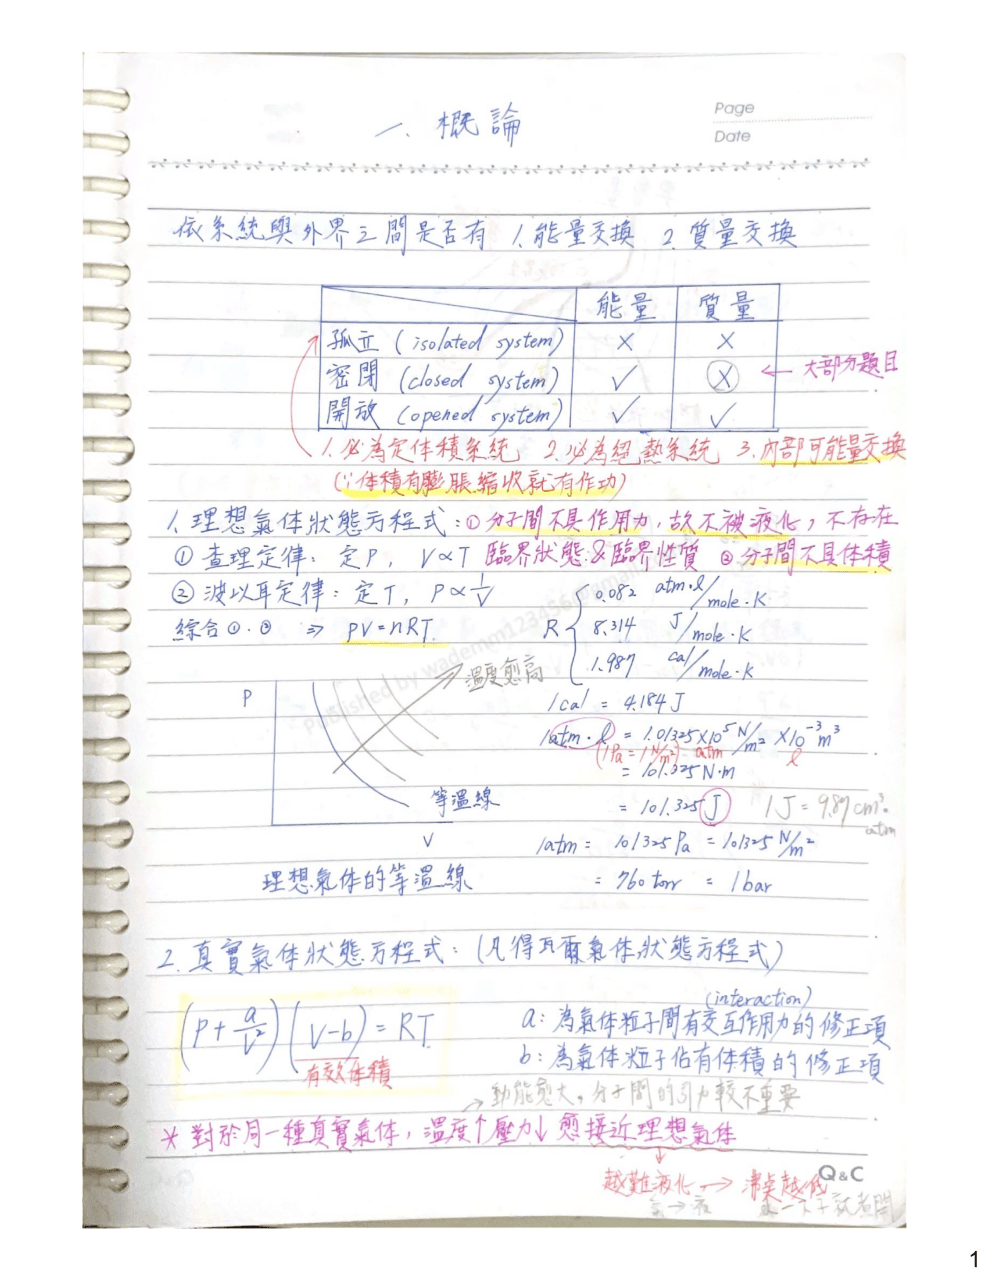 Page
Date
一、概論
依系統與外界之間是否有 1.能量交換 2.質量交換
能量 質量
孤立 (isolated system) × ×
密閉 (closed system) ✓ ⓧ ← 大部分題目
開放 (opened system) ✓ ✓
1.必為定体積系統 2.必為絕熱系統 3.內部可能量交換
(∵体積有膨脹縮收就有作功)
1.理想氣体狀態方程式:①分子間不具作用力,故不被液化,不存在
①查理定律:定P, V∝T 臨界狀態&臨界性質 ②分子間不具体積
②波以耳定律:定T, P∝1/V
綜合①.② ⇒ PV=nRT.
R { 0.082 atm·l/mole·K
8.314 J/mole·K
1.987 cal/mole·K
published by wademm123456@gmail
P
溫度愈高
等溫線
V
理想氣体的等溫線
1cal = 4.184 J
1atm·l = 1.01325×10⁵ N/m² ×10⁻³ m³
(1Pa = 1N/m²) atm l
= 101.325 N·m
= 101.325 J 1J = 9.87 cm³·atm
1atm = 101325 Pa = 101325 N/m²
= 760 torr = 1bar
2.真實氣体狀態方程式:(凡得瓦爾氣体狀態方程式)
(P+a/V²)(V-b)=RT
有效体積
(interaction)
a:為氣体粒子間有交互作用力的修正項
b:為氣体粒子佔有体積的修正項
→動能愈大,分子間的引力較不重要
*對於同一種真實氣体,溫度↑壓力↓愈接近理想氣体
↓
越難液化→沸點越低
氣→液 一下子就煮開
Q&C
1